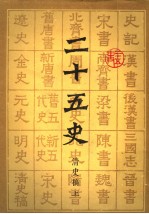 二十五史
清史稿
史記 漢書 後漢書 三國志 晉書
宋書 南齊書 梁書 陳書 魏書
北齊書
舊唐書 新唐書 舊五代史 新五代史
遼史 金史 元史 明史 清史稿